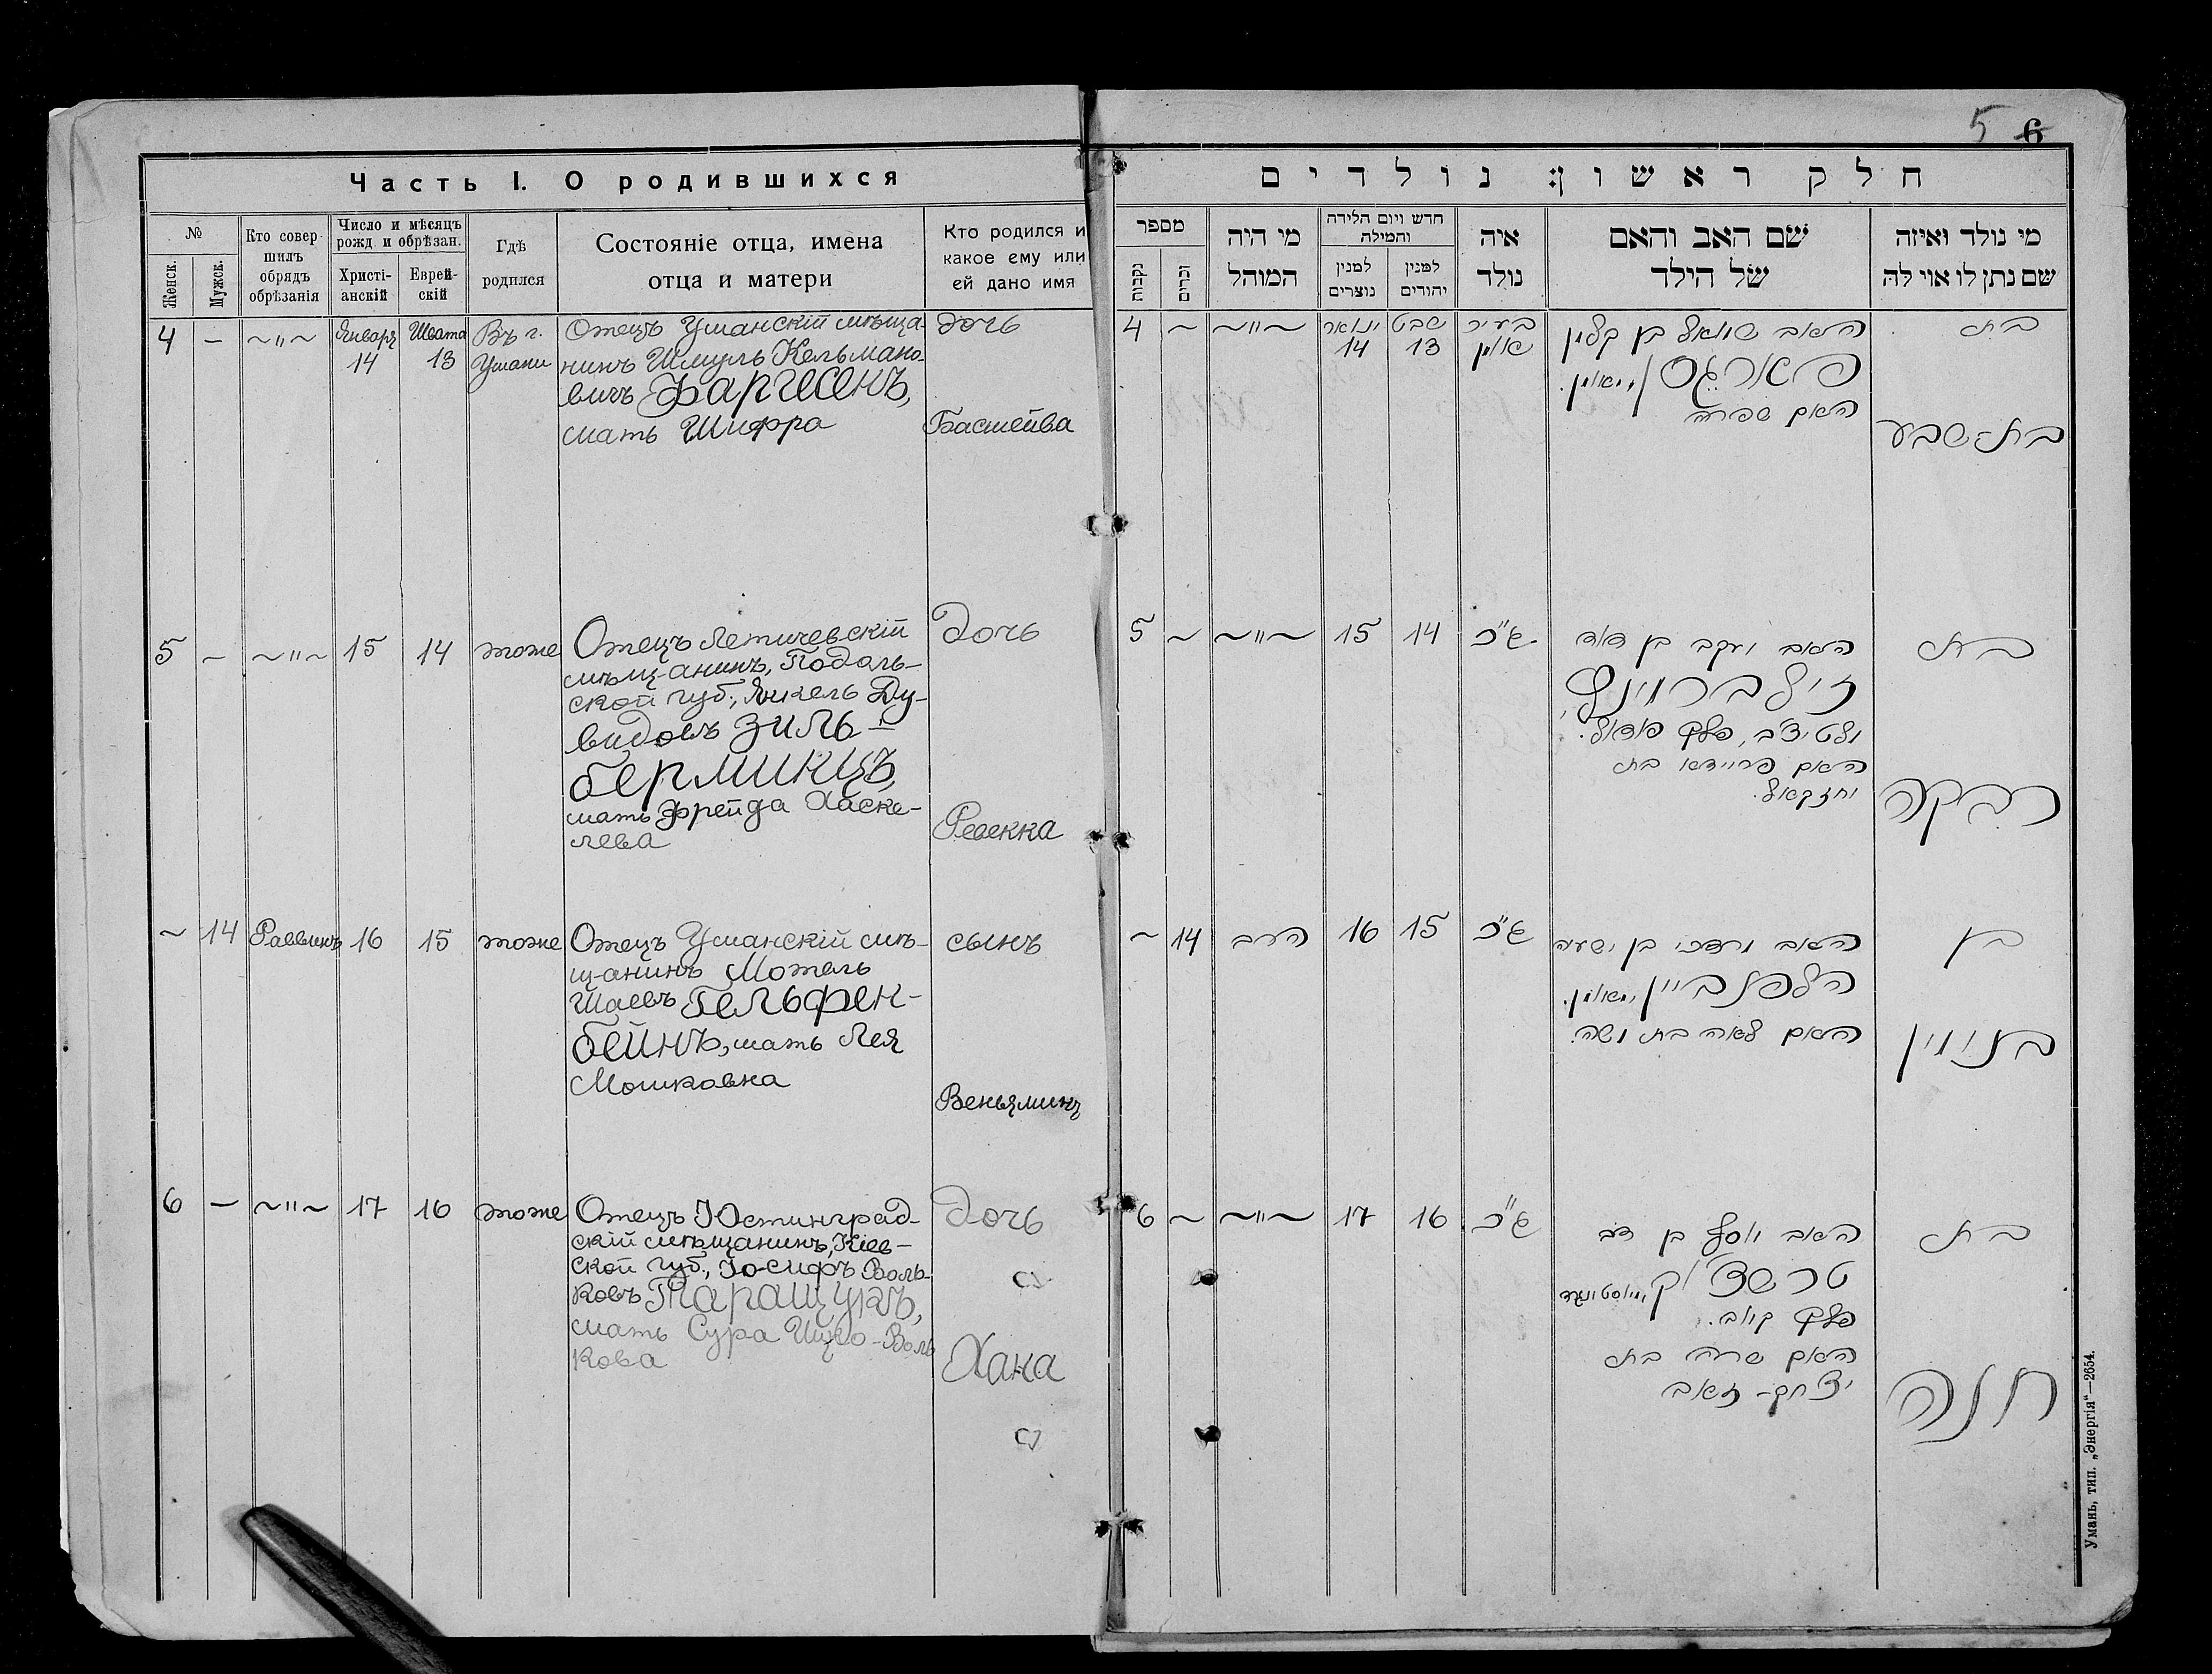 5 6
Часть I. О родившихся
№
Женск.
Мужск.
Кто совер-
шилъ
обрядъ
обрѣзанія
Число и мѣсяцъ
рожд. и обрѣзан.
Христі-
анскій
Еврей-
скій
Гдѣ
родился
Состояніе отца, имена
отца и матери
Кто родился и
какое ему или
ей дано имя
4 — ~"~ Января 14 Швата 13 Въ г. Умани
Отецъ Уманскій мѣща-
нинъ Шмуль Кельмано-
вичъ Фаргесенъ,
мать Шифра
дочь
Басшейва
5 — ~"~ 15 14 тоже
Отецъ Летичевскій
мѣщанинъ, Подоль-
ской губ., Янкель Ду-
видовъ Зиль-
берминцъ,
мать Фрейда Хаске-
лева
дочь
Ревекка
~ 14 Раввинъ 16 15 тоже
Отецъ Уманскій мѣ-
щанинъ Мотель
Шаевъ Гельфен-
бейнъ, мать Лея
Мошковна
сынъ
Веньяминъ
6 — ~"~ 17 16 тоже
Отецъ Юстинград-
скій мѣщанинъ, Кіев-
ской губ., Іосифъ Воль-
ковъ Таращукъ,
мать Сура Ицко-Воль
кова
дочь
Хана
חלק ראשון: נולדים
מספר
נקבות
זכרים
מי היה
המוהל
חדש ויום הלידה
והמילה
למנין
נוצרים
למנין
יהודים
איה
נולד
שם האב והאם
של הילד
מי נולד ואיזה
שם נתן לו אוי לה
4 ~ ~"~ ינואר 14 שבט 13 בעיר אומן
האב שמואל בן קלמן
האם שפרה
בת
בת-שבע
5 ~ ~"~ 15 14
האב יעקב בן דוד
זילברמינץ
האם פריידא בת
יחזקאל.
בת
רבקה
~ 14 הרב 16 15
האב מרדכי בן ישעיה
העלפנביין, מאומן.
האם לאה בת משה.
בן
בנימין
6 ~ ~"~ 17 16
האב יוסף בן
טרשצוק
פלך קיוב.
האם שרה בת
יצחק-זאב
בת
חנה
Умань, тип. „Энергія“—2654.